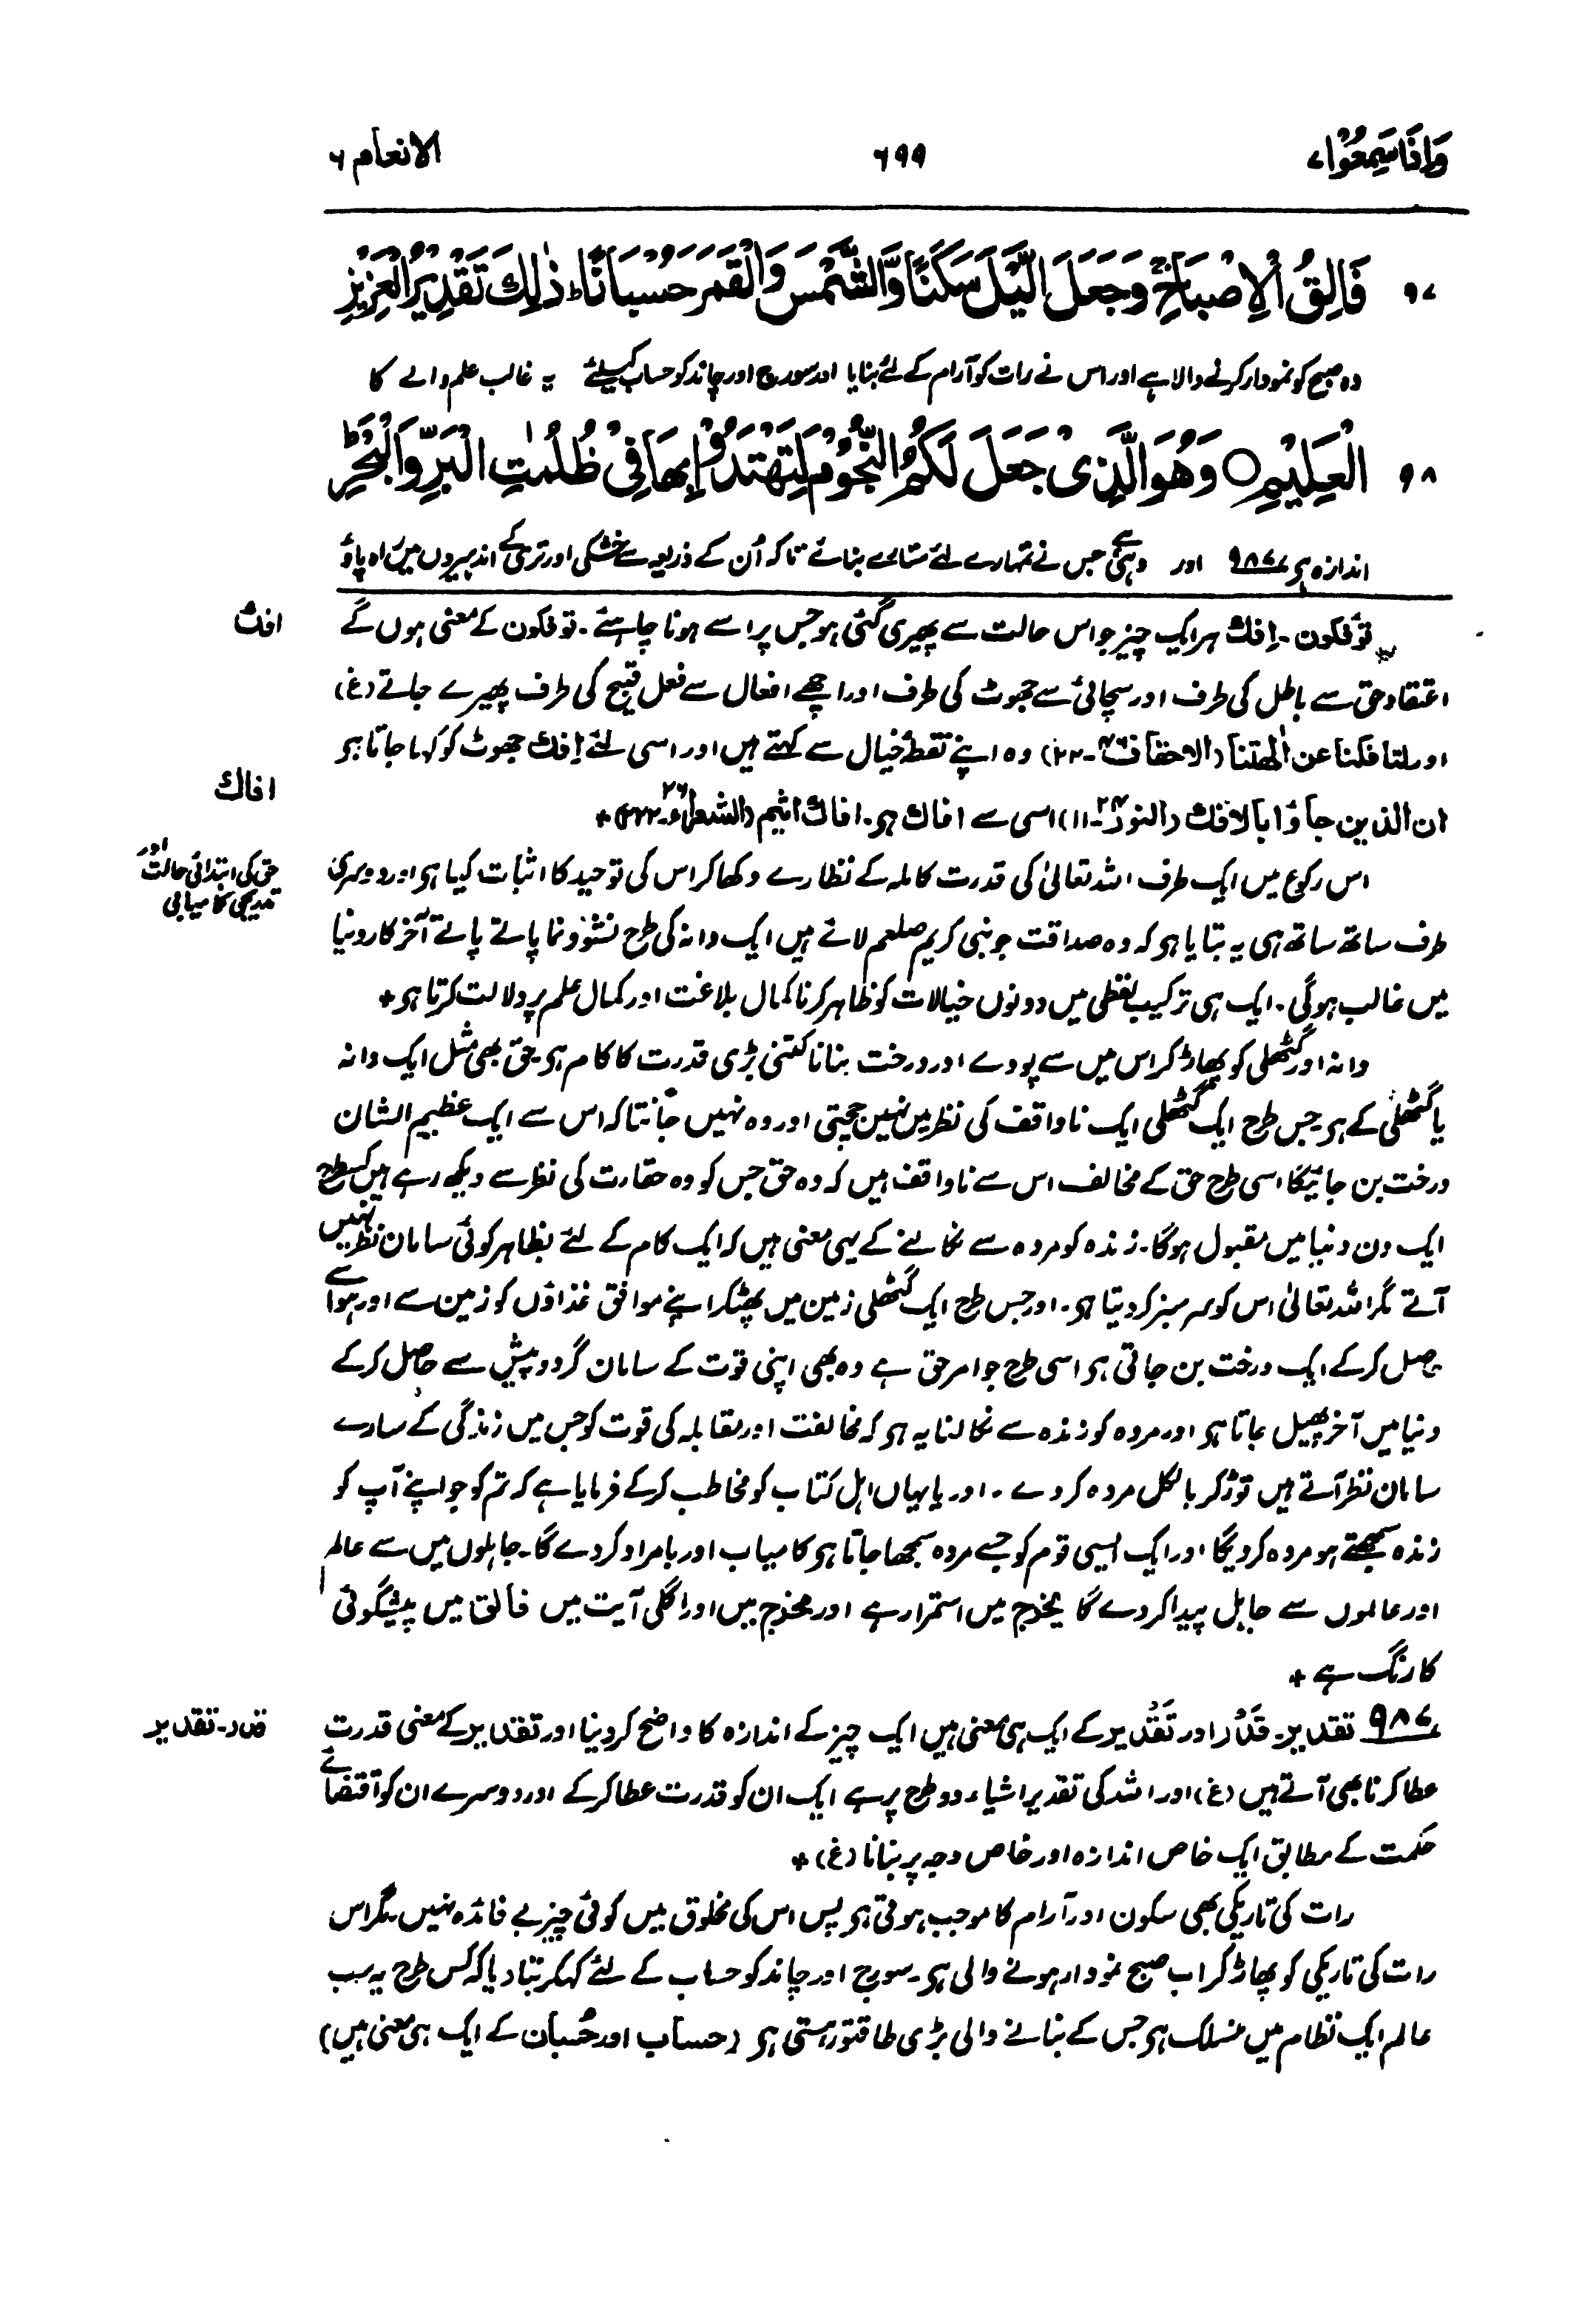 وَاِذَا سَمِعُوْا ۷
۶۹۹
الانعام ۶
۹۷ فَالِقُ الْاِصْبَاحِ ۚ وَجَعَلَ الَّيْلَ سَكَنًا وَّالشَّمْسَ وَالْقَمَرَ حُسْبَانًا ؕ ذٰلِكَ تَقْدِيْرُ الْعَزِيْزِ
وہ صبح کو نمودار کرنے والا ہے اور اس نے رات کو آرام کے لئے بنایا اور سورج اور چاند کو حساب کیلئے یہ غالب علم والے کا
۹۸ الْعَلِيْمِ ○ وَهُوَ الَّذِيْ جَعَلَ لَكُمُ النُّجُوْمَ لِتَهْتَدُوْا بِهَا فِيْ ظُلُمٰتِ الْبَرِّ وَالْبَحْرِ ؕ
اندازہ ہے ۹۸۷ اور وہی ہے جس نے تمہارے لئے ستارے بنائے تاکہ اُن کے ذریعہ سے خشکی اور تری کے اندھیروں میں راہ پاؤ
تؤفکون۔ اِفك ہر ایک چیز جو اس حالت سے پھیری گئی ہو جس پر اسے ہونا چاہئے۔ توفکون کے معنی ہوں گے
افك
اعتقاد حق سے باطل کی طرف اور سچائی سے جھوٹ کی طرف اور اچھے افعال سے فعل قبیح کی طرف پھیرے جاتے (غ)
اور لتافکنا عن اٰلهتنا (الاحقاف ۴۶-۲۲) وہ اپنے نقطۂ خیال سے کہتے ہیں اور اسی لئے اِفك جھوٹ کو کہا جاتا ہے
ان الذین جآؤا بالافك (النور ۲۴-۱۱) اسی سے افاك ہے۔ افاك اثیم (الشعراء ۲۶-۲۲۲)+
افاك
اس رکوع میں ایک طرف اللہ تعالیٰ کی قدرت کاملہ کے نظارے دکھا کر اس کی توحید کا اثبات کیا ہے اور دوسری
حق کی ابتدائی حالت اور
تدریجی کامیابی
طرف ساتھ ساتھ ہی یہ بتایا ہے کہ وہ صداقت جو نبی کریم صلعم لائے ہیں ایک دانہ کی طرح نشوونما پاتے پاتے آخر کار دنیا
میں غالب ہوگی۔ ایک ہی ترکیب لفظی میں دونوں خیالات کو ظاہر کرنا کمال بلاغت اور کمال علم پر دلالت کرتا ہے+
دانہ اور گٹھلی کو پھاڑ کر اس میں سے پودے اور درخت بنانا کتنی بڑی قدرت کا کام ہے حق بھی مثل ایک دانہ
یا گٹھلی کے ہے جس طرح ایک گٹھلی ایک ناواقف کی نظر میں نہیں جچتی اور وہ نہیں جانتا کہ اس سے ایک عظیم الشان
درخت بن جائیگا اسی طرح حق کے مخالف اس سے ناواقف ہیں کہ وہ حق جس کو وہ حقارت کی نظر سے دیکھ رہے ہیں کس طرح
ایک دن دنیا میں مقبول ہوگا۔ زندہ کو مردہ سے نکالنے کے یہی معنی ہیں کہ ایک کام کے لئے بظاہر کوئی سامان نظر نہیں
آتے مگر اللہ تعالیٰ اس کو سرسبز کر دیتا ہے۔ اور جس طرح ایک گٹھلی زمین میں پھٹکر اپنے موافق غذاؤں کو زمین سے اور ہوا سے
حاصل کرکے ایک درخت بن جاتی ہے اسی طرح جو امر حق ہے وہ بھی اپنی قوت کے سامان گرد و پیش سے حاصل کرکے
دنیا میں آخر پھیل جاتا ہے اور مردہ کو زندہ سے نکالنا یہ ہے کہ مخالفت اور مقابلہ کی قوت کو جس میں زندگی کے سارے
سامان نظر آتے ہیں توڑ کر بالکل مردہ کر دے۔ اور یا یہاں اہل کتاب کو مخاطب کرکے فرمایا ہے کہ تم کو جو اپنے آپ کو
زندہ سمجھتے ہو مردہ کر دیگا اور ایک ایسی قوم کو جسے مردہ سمجھا جاتا ہے کامیاب اور بامراد کر دے گا۔ جاہلوں میں سے عالم
اور عالموں سے جاہل پیدا کر دے گا یخرج میں استمرار ہے اور مخرج میں اور اگلی آیت میں فالق میں پیشگوئی
کا رنگ ہے +
۹۸۷ تقدیر۔ قَدَر اور تقدیر کے ایک ہی معنی ہیں ایک چیز کے اندازہ کا واضح کر دینا اور تقدیر کے معنی قدرت
قدر۔ تقدیر
عطا کرنا بھی آتے ہیں (غ) اور اللہ کی تقدیر اشیاء دو طرح پر ہے ایک ان کو قدرت عطا کرکے اور دوسرے ان کو اقتضائے
حکمت کے مطابق ایک خاص اندازہ اور خاص وجہ پر بنانا (غ) +
رات کی تاریکی بھی سکون اور آرام کا موجب ہوتی ہے پس اس کی مخلوق میں کوئی چیز بے فائدہ نہیں مگر اس
رات کی تاریکی کو پھاڑ کر اب صبح نمودار ہونے والی ہے۔ سورج اور چاند کو حساب کے لئے کہکر بتا دیا کہ کس طرح یہ سب
عالم ایک نظام میں منسلک ہے جس کے بنانے والی بڑی طاقتور ہستی ہے (حساب اور حُسبان کے ایک ہی معنی ہیں)